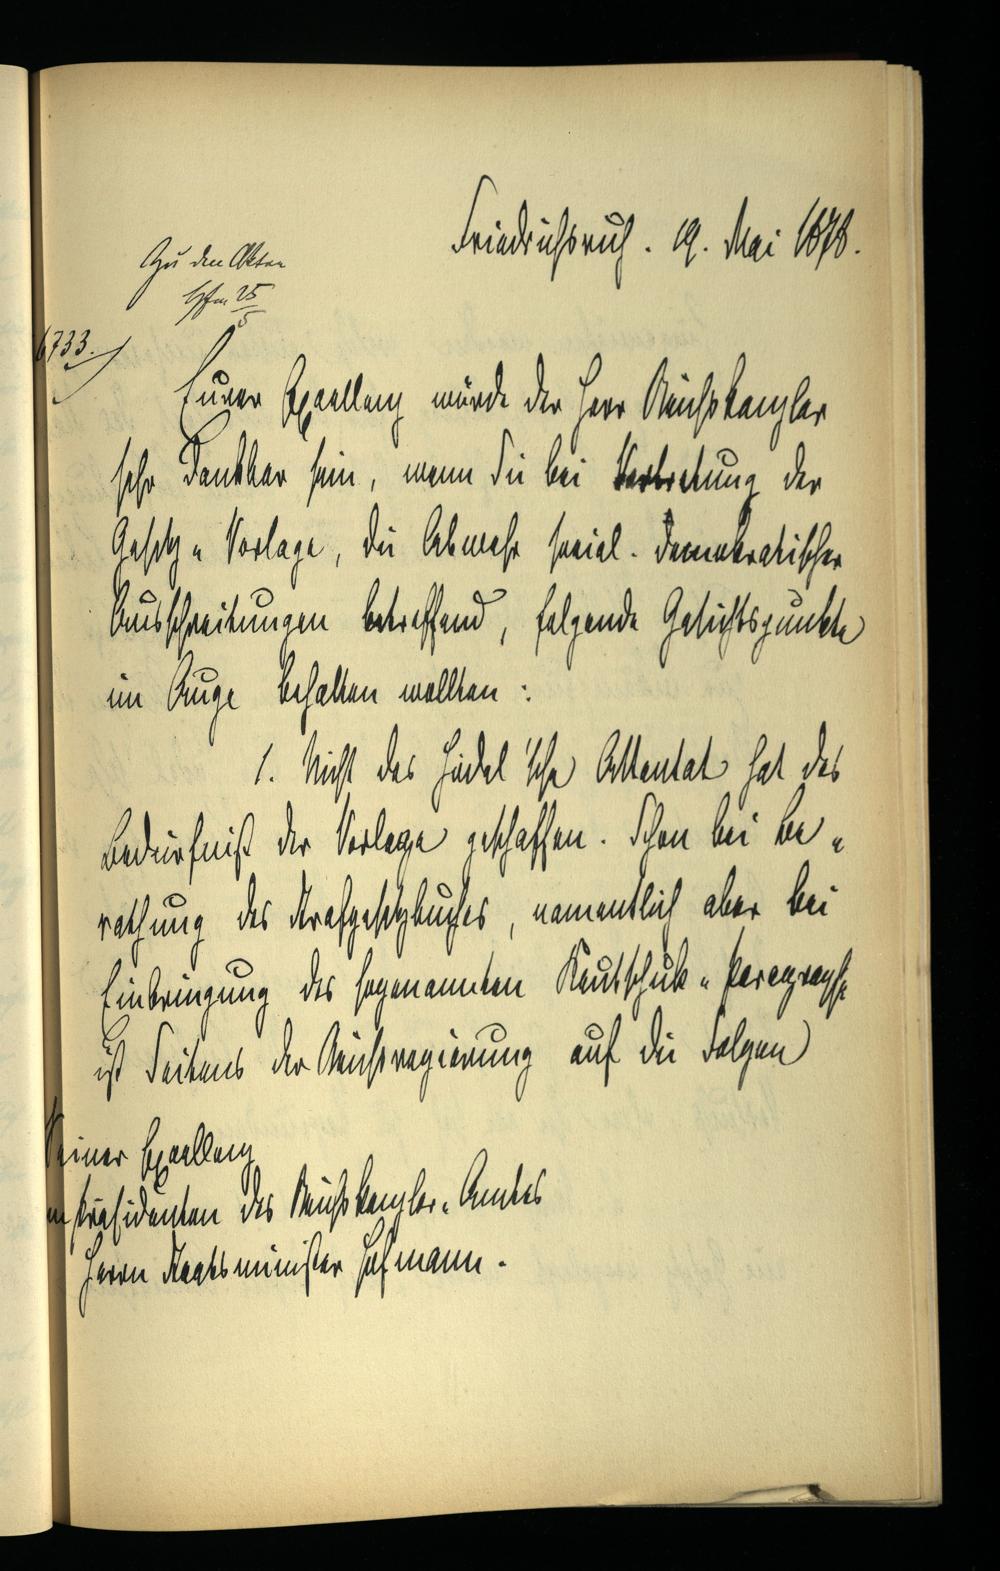 Friedrichsruh. 19. Mai 1878.
Zu den Akten
Hfm 25/5
6733.
Eurer Excellenz würde der Herr Reichskanzler
sehr dankbar sein, wenn Sie bei Vertretung der
Gesetz-Vorlage, die Abwehr social-demokratischer
Ausschreitungen betreffend, folgende Gesichtspunkte
im Auge behalten wollten:
1. Nicht das Hödel'sche Attentat hat das
Bedürfniß der Vorlage geschaffen. Schon bei Be-
rathung des Strafgesetzbuches, namentlich aber bei
Einbringung des sogenannten Kautschuk-Paragraphs
ist Seitens der Reichsregierung auf die Folgen
Seiner Excellenz
Präsidenten des Reichskanzler-Amtes
Herrn Staatsminister Hofmann.